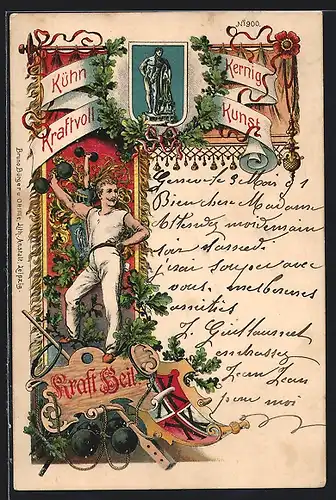 No 900.
Kühn
Kernig
Kraftvoll
Kunst
Genève le 3 Mai 01
Bien chère Madame
Attendez moi demain
soir
j'irai souper avec
vous, meilleures
amitiés
J.
embrassez
Jean Jean
pour moi
Kraft Heil
Bruno Bürger & Ottilie, Lith. Anstalt, Leipzig.